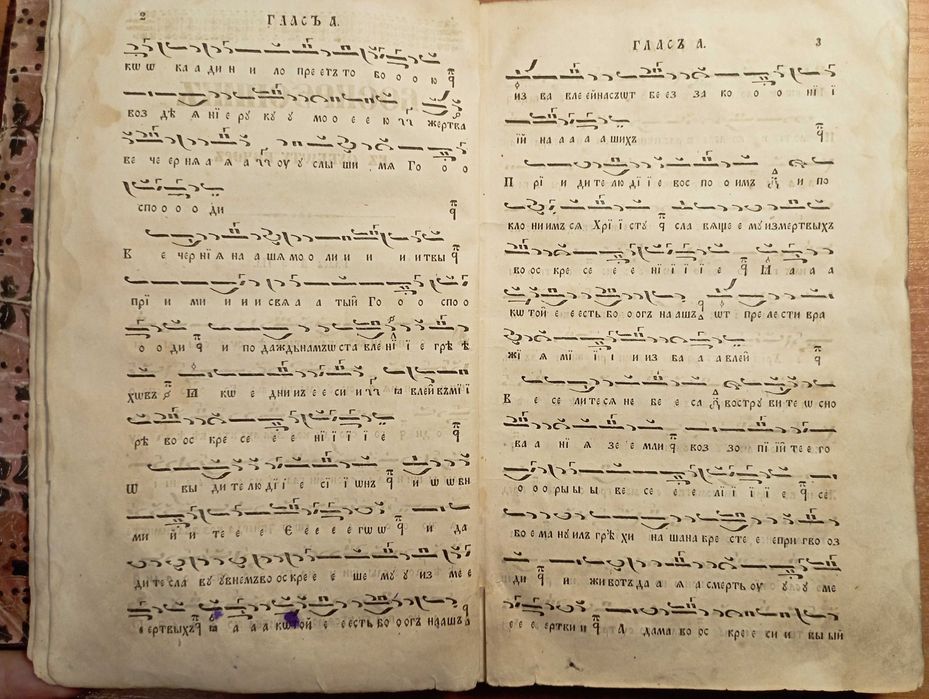 2
ГЛАСЪ А.
кѡѡ ка а ди н и ло пре етъ то бо о о ю
воз дѣ ѧ нїе ру ку у мо о е е ю жертва
ве че рнѧ а ѧ а оу у слы ши мѧ Го о о
спо о о о ди
В е чер нїѧ на а шѧ мо о ли и и и и твы
прї и ми и и и свѧ а а тый Го о о о спо о
о о ди и по даждьнамъѡста вле нї ї е грѣ ѣ
хѡвъ Ꙗ кѡ е динъ е е си и ꙗ влей въ мї ї
рѣ во ос кре се е е нї ї ї ї е
Ѡ вы ди те лю дї ї е сї ї ѡнъ и ѡ ѡ бн
ми й и те е е Є е е е гѡѡ и да
ди те сла ву у внемъ во скре е е ше му у из ме е
е ертвыхъ ꙗ а а а кѡ той е е есть бо о огъ на ашъ
ГЛАСЪ А.
3
из ба влеейнасъѡт бе ез за ко о о нї ї
їй на а а а а шихъ
П рї и ди те лю дї ї е вос по о имъ и по
кло ни имъ сѧ Хрї ї сту сла вѧще е му измертвыхъ
во ос кре се е е нї ї ї ї е Ꙗ а а а
кѡ той е е есть бо о огъ на ашъ ѡт пре лести вра
жї ѧ мї ї ї и из ба а а влей
В е се ли те сѧ не бе е са востру би те ѡ сно
ва а нї ѧ зе е мли воз зо пї їй те е го
о о о ры ы ы ве се е е е лї ї ї ї е се
бо е ма нуилъ грѣ хи на ша на кре сте е епри гво оз
ди и животъ да а ѧ а смерть оу у у у ме
е е е ертви и А дама во ос кре е си и вы ый